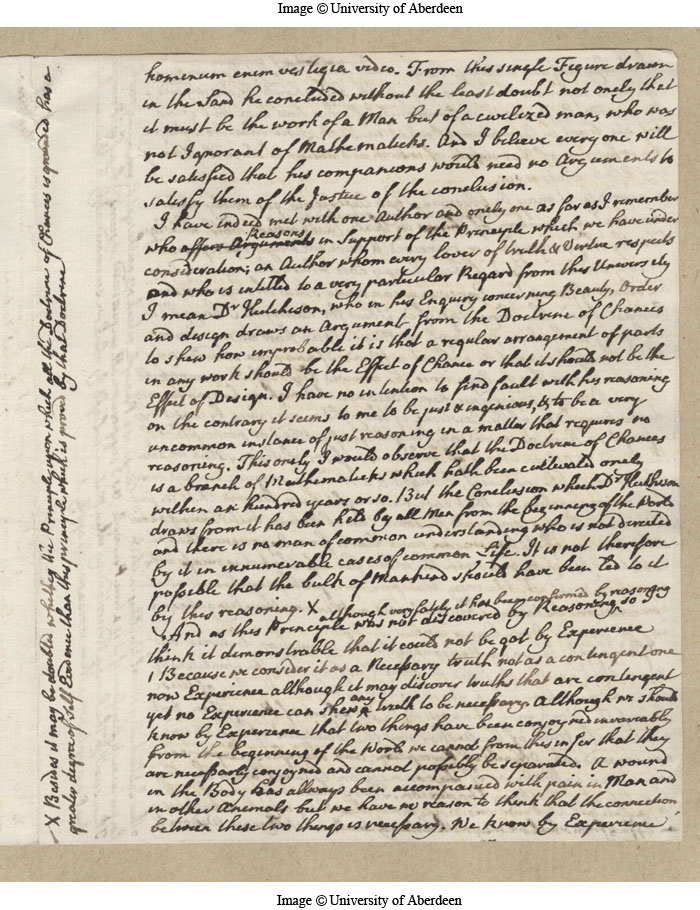 Image © University of Aberdeen
hominum enim vestigia video. From this single Figure drawn
in the Sand he concluded without the least doubt not onely that
it must be the work of a Man but of a civilized man, who was
not Ignorant of Mathematicks. And I believe every one will
be satisfied that his companions would need no Arguments to
satisfy them of the Justice of the conclusion.
I have indeed met with one Author and onely one as far as I remember
Reasons
who offers Arguments in Support of the Principle which we have under
consideration; an Author whom every lover of truth & Virtue respects
and who is intitled to a very particular Regard from this University
I mean Dr Hutcheson, who in his Enquiry concerning Beauty, Order
and design draws an Argument from the Doctrine of Chances
to shew how improbable it is that a regular arrangement of parts
in any work should be the Effect of Chance or that it should not be the
Effect of Design. I have no intention to find fault with his reasoning
on the contrary it seems to me to be just & ingenious, & to be a very
uncommon instance of just reasoning in a matter that requires no
reasoning. This onely I would observe that the Doctrine of Chances
is a branch of Mathematicks which hath been cultivated onely
within an hundred years or so. But the Conclusion which Dr Hutcheson
draws from it has been held by all Men from the beginning of the World
and there is no man of common understanding who is not directed
by it in innumerable cases of common Life. It is not therefore
possible that the bulk of Mankind should have been led to it
by this reasoning. X
although very lately it has been confirmed by reasoning
And as this Principle was not discovered by Reasoning so I
think it demonstrable that it could not be got by Experience
1 Because we consider it as a Necessary truth not as a contingent one
now Experience although it may discover truths that are contingent
any
yet no Experience can shew truth to be necessary. Although we should
know by Experience that two things have been conjoyned invariably
from the beginning of the World we cannot from this infer that they
are necessarly conjoyned and cannot possibly be separated. A wound
in the Body has allways been accompanied with pain in Man and
in other Animals but we have no reason to think that the connection
between these two things is necessary. We know by Experience
X Besides it may be doubted whether the Principle upon which all the Doctrine of Chances is grounded has a
greater degree of Self Evidence than this principle which is proved by that Doctrine
Image © University of Aberdeen